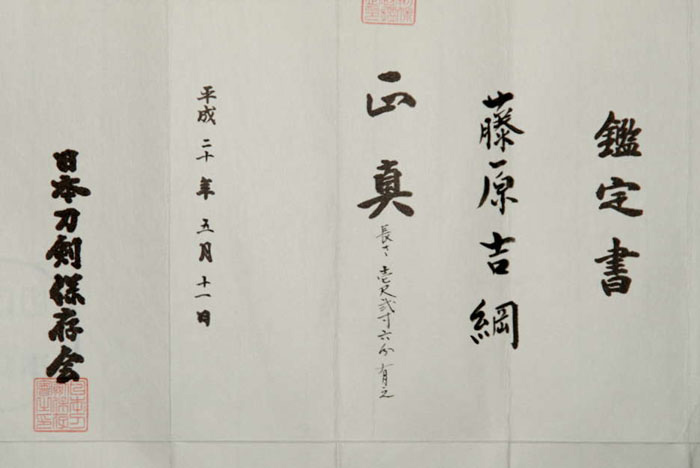 鑑定書
藤原吉綱
正真
長さ壱尺弐寸六分有之
平成二十年五月十一日
日本刀剣保存会